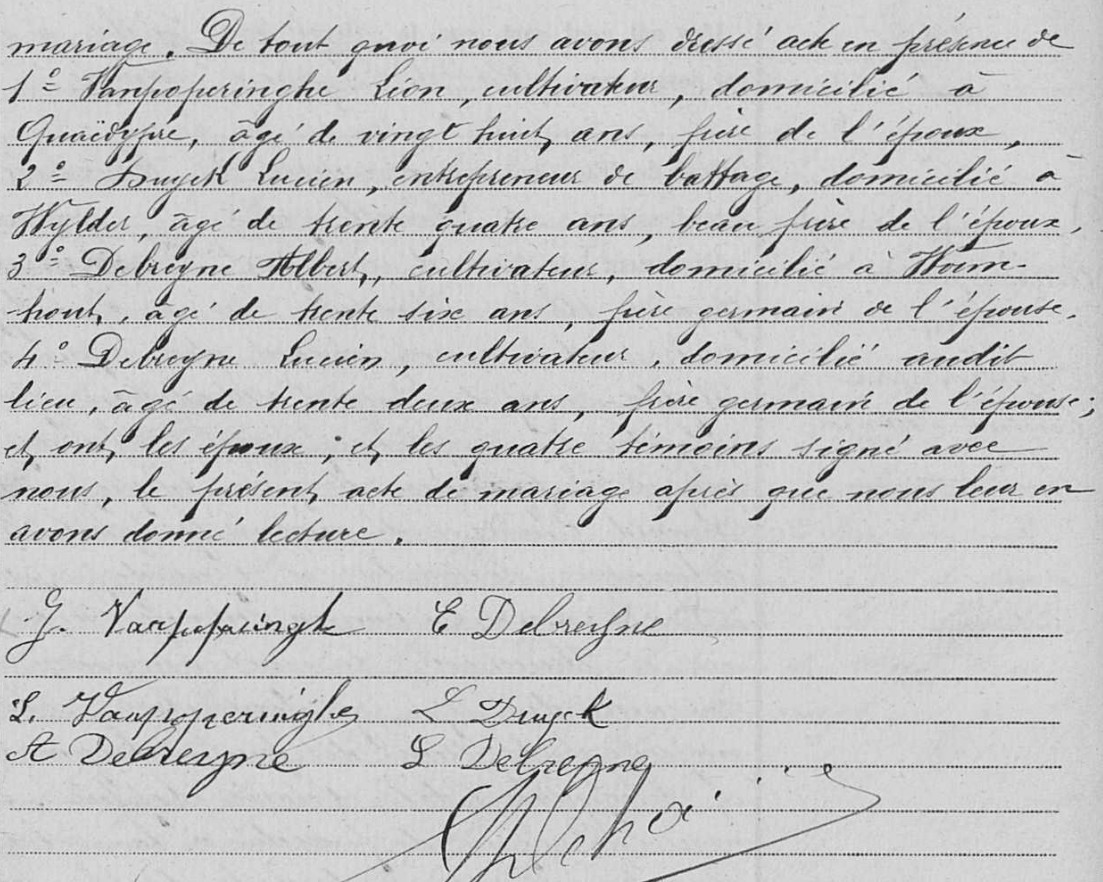 mariage. De tout quoi nous avons dressé acte en présence de
1º Vanpoperinghe Léon, cultivateur, domicilié à
Quaëdypre, âgé de vingt huit ans, frère de l'époux,
2º Duyck Lucien, entrepreneur de battage, domicilié à
Wylder, âgé de trente quatre ans, beau frère de l'époux,
3º Debreyne Albert, cultivateur, domicilié à Worm-
hout, âgé de trente six ans, frère germain de l'épouse.
4º Debreyne Lucien, cultivateur, domicilié audit
lieu, âgé de trente deux ans, frère germain de l'épouse;
et ont, les époux; et les quatre témoins signé avec
nous, le présent acte de mariage après que nous leur en
avons donné lecture.
G. Vanpoperinghe E Debreyne
L. Vanpoperinghe L Duyck
A Debreyne L Debreyne